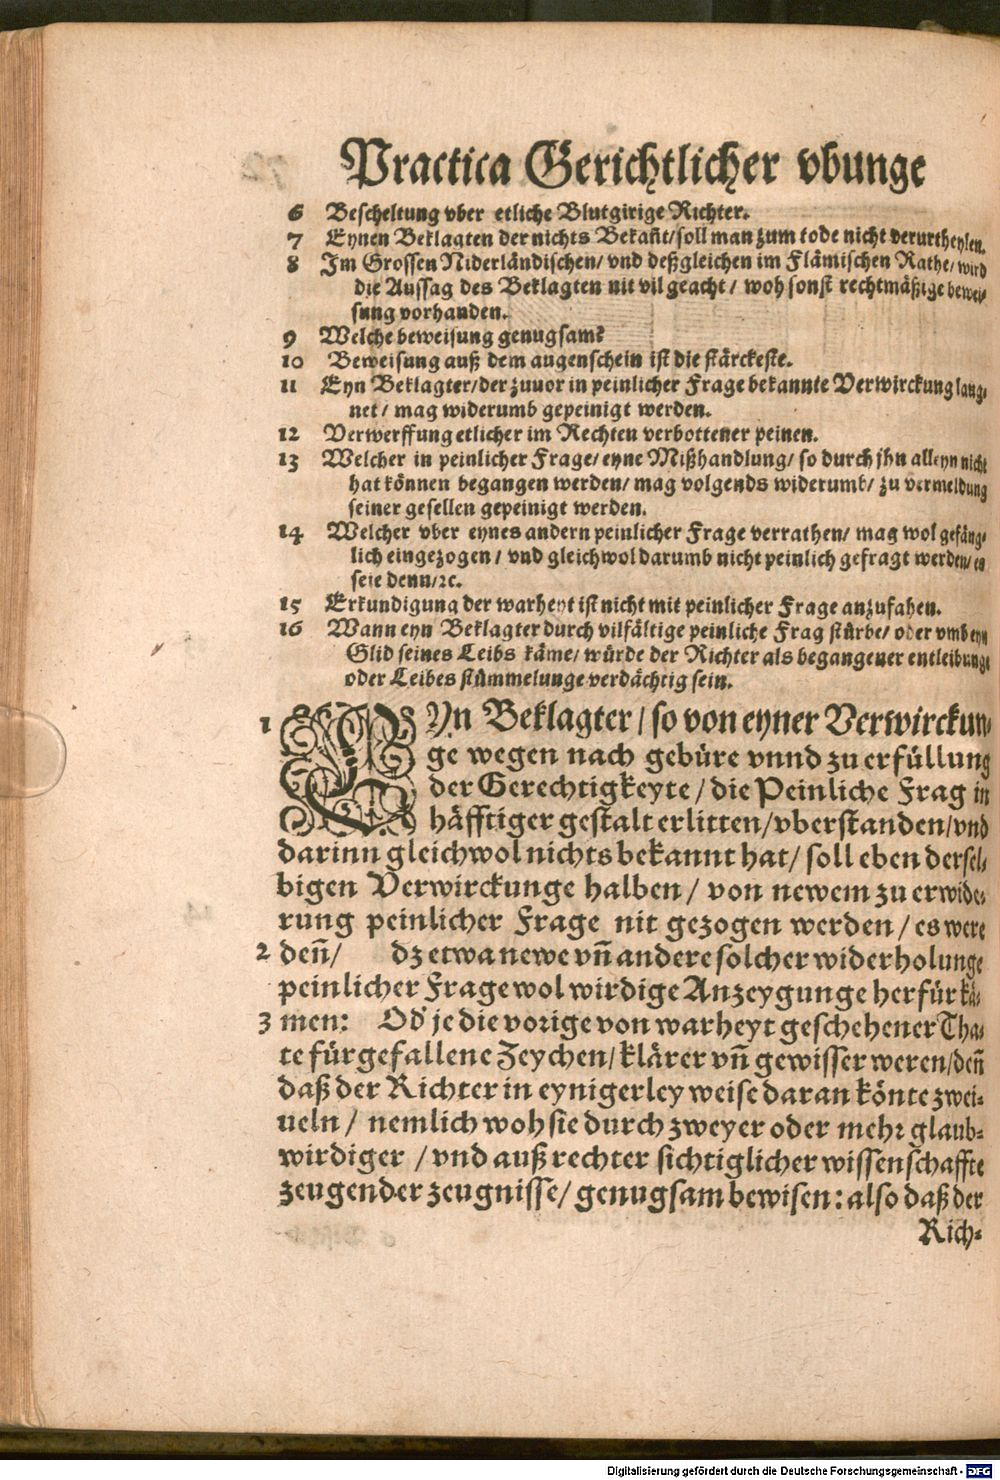 Practica Gerichtlicher vbunge
6 Bescheltung vber etliche Blutgirige Richter.
7 Eynen Beklagten der nichts Bekañt/soll man zum tode nicht verurtheylen.
8 Im Grossen Niderländischen/ vnd deßgleichen im Flämischen Rathe/ wird
die Aussag des Beklagten nit vil geacht / woh sonst rechtmäßige bewei⸗
sung vorhanden.
9 Welche beweisung genugsam?
10 Beweisung auß dem augenschein ist die stärckeste.
11 Eyn Beklagter/der zuuor in peinlicher Frage bekannte Verwirckung laug⸗
net / mag widerumb gepeinigt werden.
12 Verwerffung etlicher im Rechten verbottener peinen.
13 Welcher in peinlicher Frage/ eyne Mißhandlung/ so durch jhn alleyn nicht
hat können begangen werden/ mag volgends widerumb/ zu vermeldung
seiner gesellen gepeinigt werden.
14 Welcher vber eynes andern peinlicher Frage verrathen/ mag wol gefäng⸗
lich eingezogen / vnd gleichwol darumb nicht peinlich gefragt werden/ es
seie denn/ꝛc.
15 Erkundigung der warheyt ist nicht mit peinlicher Frage anzufahen.
16 Wann eyn Beklagter durch vilfältige peinliche Frag stürbe/ oder vmb eyn
Glid seines Leibs käme/ würde der Richter als begangener entleibunge
oder Leibes stümmelunge verdächtig sein.
1 EYn Beklagter / so von eyner Verwirckun⸗
ge wegen nach gebüre vnnd zu erfüllung
der Gerechtigkeyte / die Peinliche Frag in
häfftiger gestalt erlitten/vberstanden/vnd
darinn gleichwol nichts bekannt hat/ soll eben dersel⸗
bigen Verwirckunge halben / von newem zu erwide⸗
rung peinlicher Frage nit gezogen werden / es were
2 deñ/ dz etwa newe vñ andere solcher widerholunge
peinlicher Frage wol wirdige Anzeygunge herfür kä⸗
3 men: Od' je die vorige von warheyt geschehener Tha⸗
te fürgefallene Zeychen/ klärer vñ gewisser weren/deñ
daß der Richter in eynigerley weise daran könte zwei⸗
ueln / nemlich woh sie durch zweyer oder mehr glaub⸗
wirdiger / vnd auß rechter sichtiglicher wissenschaffte
zeugender zeugnisse/ genugsam bewisen: also daß der
Rich⸗
Digitalisierung gefördert durch die Deutsche Forschungsgemeinschaft - DFG